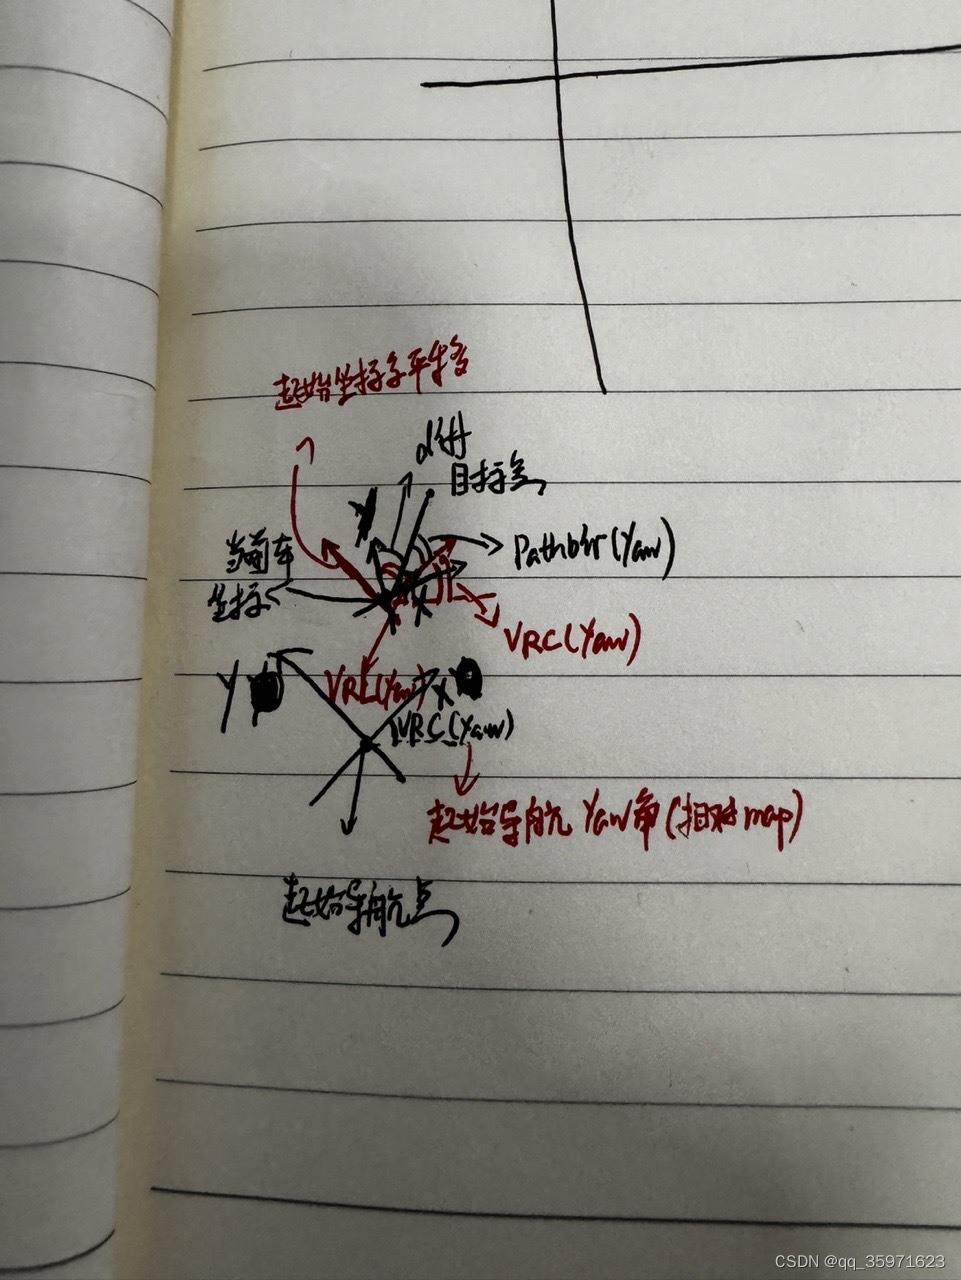 起始坐标系平移
diff
目标点
Y
当前车
坐标
PathDir(Yaw)
X
VRC(Yaw)
Y
X
VRC(Yaw)
起始导航 Yaw角(相对map)
起始导航点
CSDN @qq_35971623